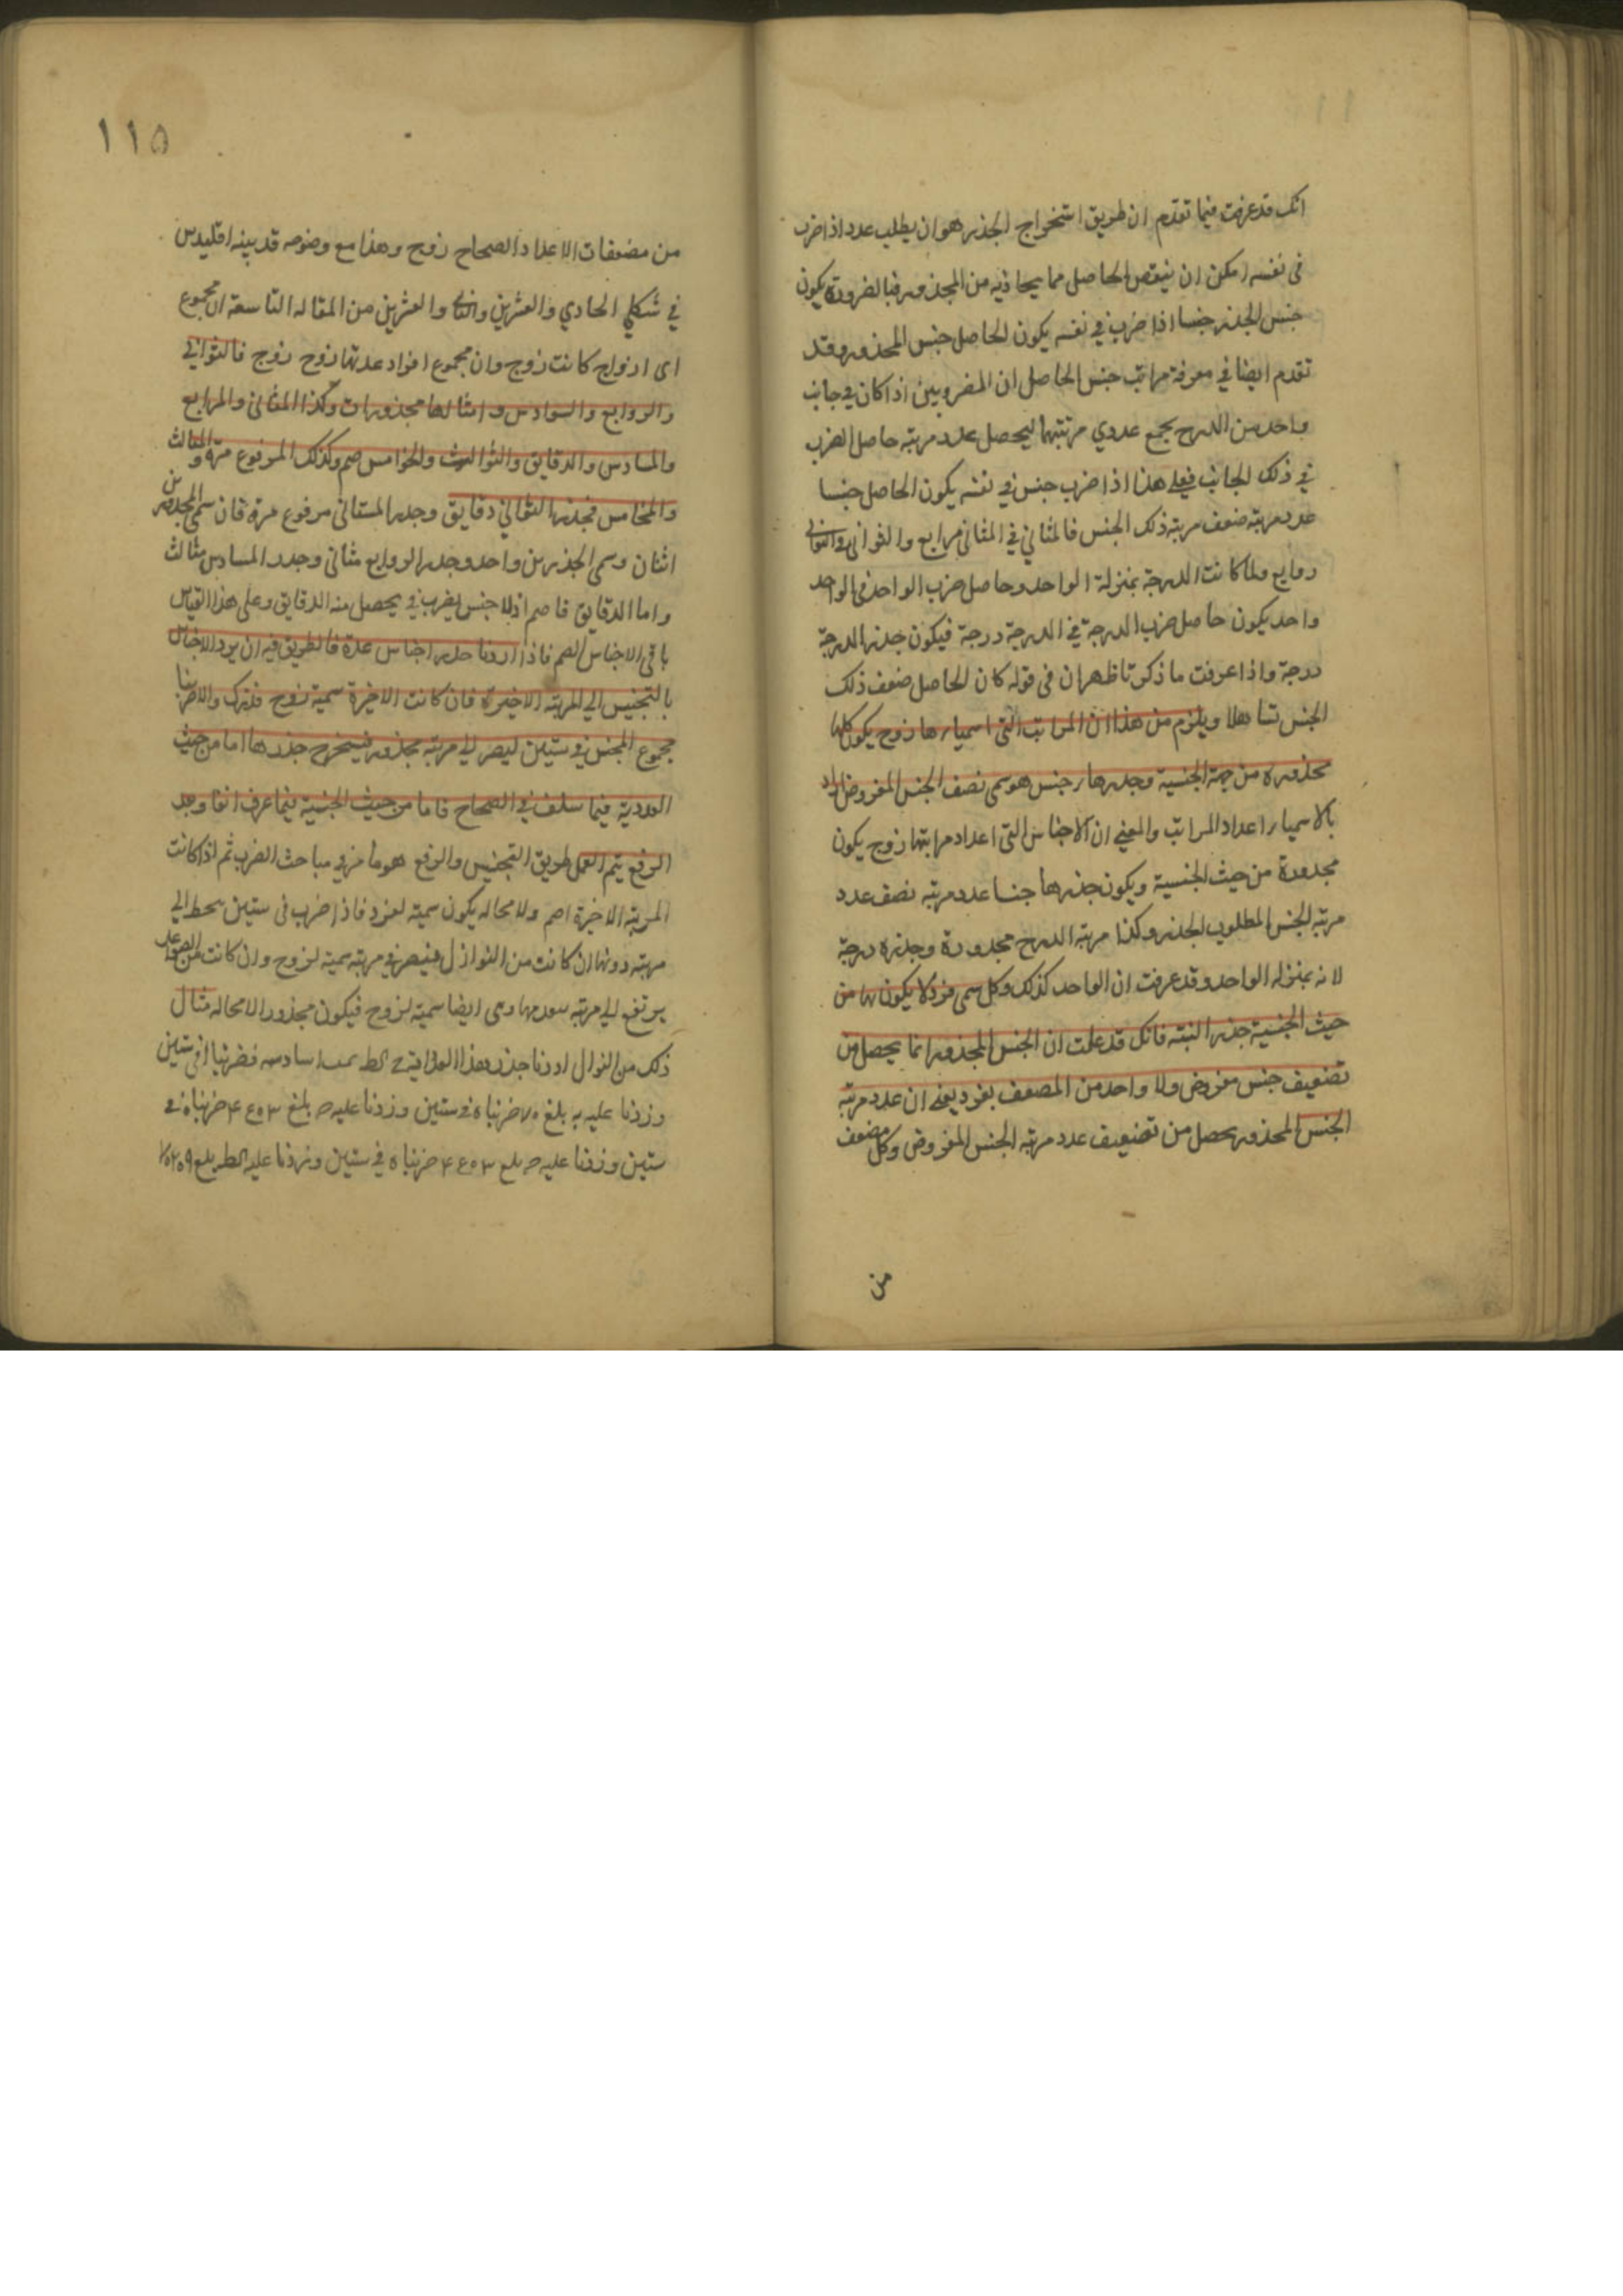 انك قد عرفت فيما تقدم ان طريق استخراج الجذر هو ان يطلب عدد اذا ضرب
فى نفسه امكن ان ينقص الحاصل مما يحاذيه من المجذور فبالضرورة يكون
جنس الجذر جنسا اذا ضرب في نفسه يكون الحاصل جنس المجذور وقد
تقدم ايضا في معرفة مراتب جنس الحاصل ان المضروبين اذا كان في جانب
واحد من الدرج يجمع عددي مرتبتهما ليحصل عدد مرتبه حاصل الضرب
في ذلك الجانب فعلى هذا اذا ضرب جنس في نفسه يكون الحاصل جنسا
عدد مرتبه ضعف مرتبة ذلك الجنس فالمثاني في المثانى مرابع والثوانى في الثوانى
روابع ولما كانت الدرجة بمنزلة الواحد وحاصل ضرب الواحد فى الواحد
واحد يكون حاصل ضرب الدرجة في الدرجة درجة فيكون جذر الدرجة
درجة واذا عرفت ما ذكرنا ظهر ان فى قوله كان الحاصل ضعف ذلك
الجنس تساهلا ويلزم من هذا ان المراتب التى اسميارها زوج يكون كلها
مجذوره من جهة الجنسية وجذرها جنس هو سمى نصف الجنس المفروض اراد
بالاسميار اعداد المراتب والمعنى ان الاجناس التى اعداد مراتبها زوج يكون
مجذورة من حيث الجنسية ويكون جذرها جنسا عدد مرتبه نصف عدد
مرتبه الجنس المطلوب الجذر وكذا مرتبه الدرج مجذورة وجذره درجة
لانه بمنزله الواحد وقد عرفت ان الواحد كذلك وكل سمى فرد لا يكون لها من
حيث الجنسية جذر البتة فانك قد علمت ان الجنس المجذور انما يحصل من
تضعيف جنس مفروض ولا واحد من المضعف بفرد يعنى ان عدد مرتبه
الجنس المجذور يحصل من تضعيف عدد مرتبه الجنس المفروض وكل مضعف
من
١١٥
من مضعفات الاعداد الصحاح زوج وهذا مع وضوحه قد بينه اقليدس
في شكلي الحادي والعشرين والثانى والعشرين من المقاله التاسعة ان مجموع
اى ازواج كانت زوج وان مجموع افراد عدتها زوج زوج فالثواني
والروابع والسوادس وامثالها مجذورات وكذا المثانى والمرابع
والمسادس والدقايق والثوالث والخوامس صم وكذلك المرفوع مرة والمثالث
والمخامس فجذر الثوانى دقايق وجذر المثانى مرفوع مرة فان سمى المجذورين
اثنان وسمى الجذرين واحد وجذر الروابع مثانى وجذر المسادس مثالث
واما الدقايق فاصم اذ لا جنس يضرب في يحصل منه الدقايق وعلى هذا القياس
باقى الاجناس الصم فاذا اردنا جذر اجناس عدة فالطريق فيه ان يرد الاجناس
بالتجنيس الى المرتبه الاخيرة فان كانت الاخيرة سمية زوج فلنترك والا ضربنا
مجموع المجنس في ستين ليصر الى مرتبه مجذوره فيستخرج جذرها اما من حيث
العددية فيما سلف في الصحاح فاما من حيث الجنسية فيما عرف انفا وبعد
الرفع يتم العمل طريق التجنيس والرفع هو ما مر في مباحث الضرب ثم اذا كانت
المرتبه الاخيرة اصم ولا محاله يكون سمية لفرد فاذا ضرب فى ستين ينحط الى
مرتبه دونها ان كانت من النوازل فيصر في مرتبه سمية لزوج وان كانت من الصواعد
يرتفع الى مرتبه بعدها وهى ايضا سمية لزوج فيكون مجذورا لا محاله مثال
ذلك من النوازل اردنا جذر هذا العدد سادسه فضربنا في ستين
وزدنا عليه بلغ ضربناه في ستين وزدنا عليه بلغ ضربناه في
ستين وزدنا عليه بلغ ضربناه في ستين وزدنا عليه بلغ